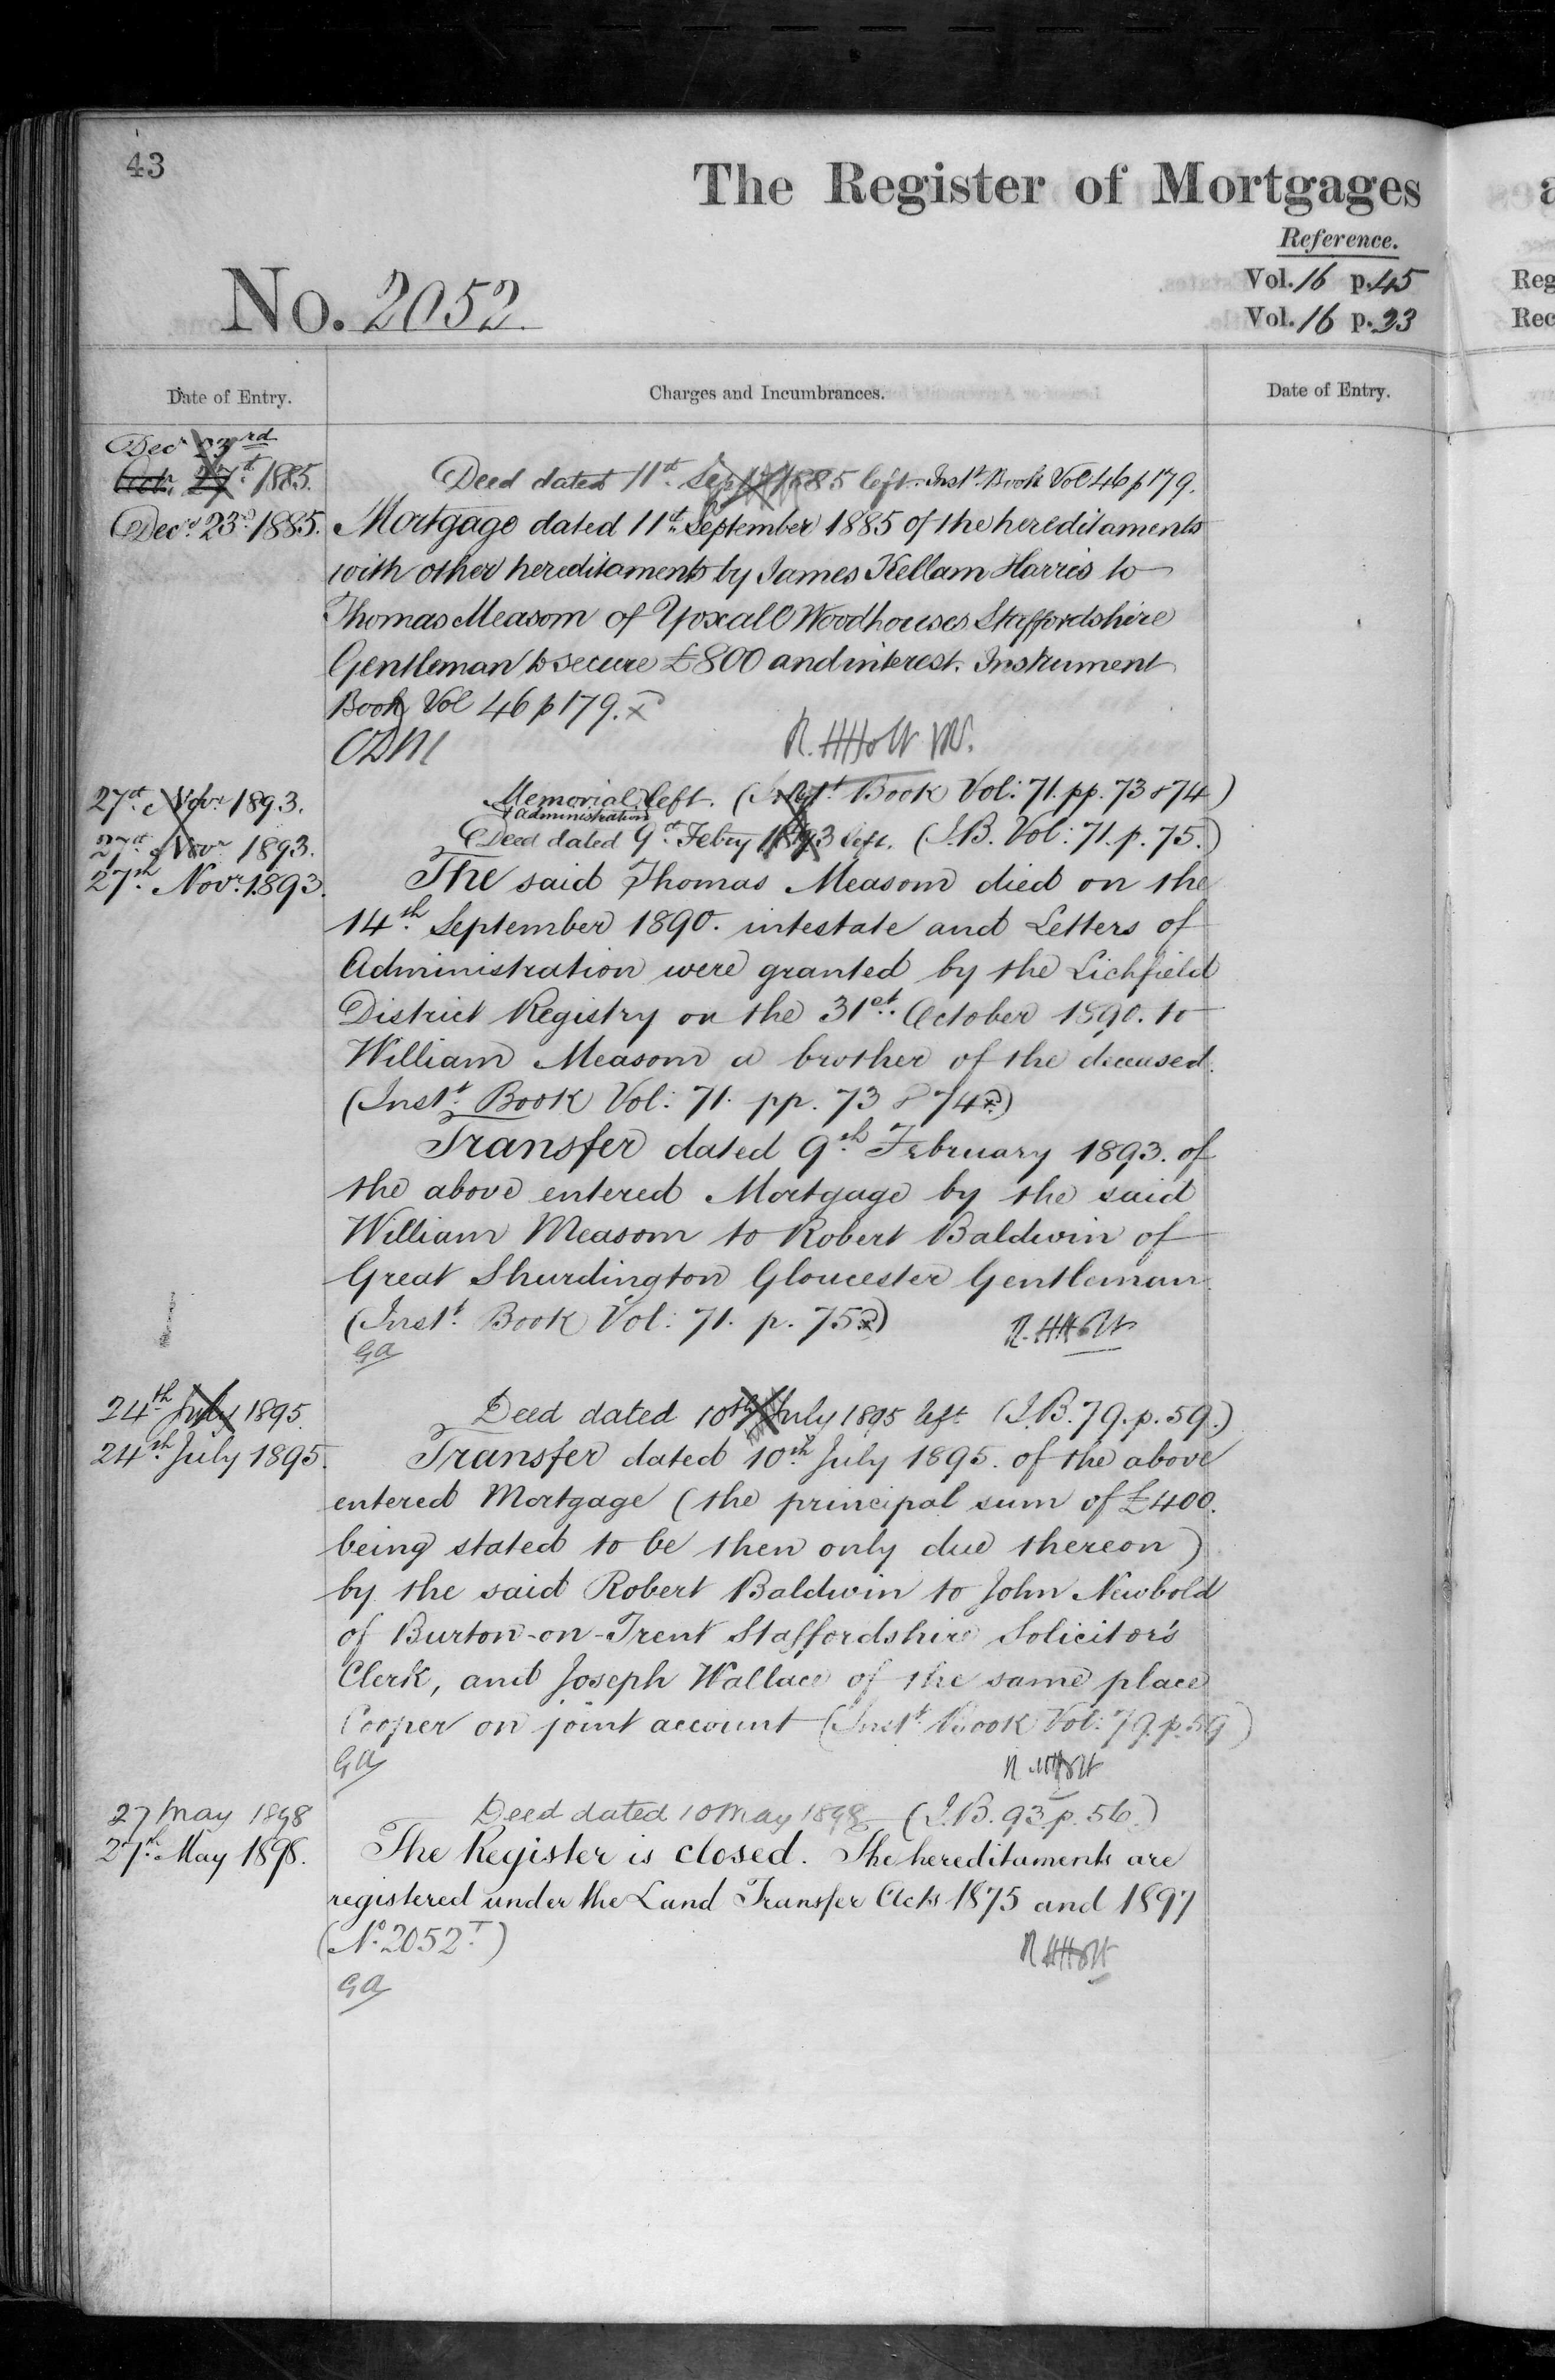 43
The Register of Mortgages
Reference.
No. 2052.
Vol. 16 p. 45
Vol. 16 p. 33
Reg
Rec
Date of Entry.
Charges and Incumbrances.
Date of Entry.
Decr 23rd
Octr. 27th 1885.
Deed dated 11th Sept 1885 left. Inst. Book Vol 46 p 179.
Decr 23d 1885.
Mortgage dated 11th September 1885 of the hereditaments
with other hereditaments by James Kellam Harris to
Thomas Measom of Yoxall Woodhouses Staffordshire
Gentleman to secure £800 and interest. Instrument
Book Vol 46 p 179.
R. H. Holt
27th Novr 1893.
Memorial left. (Inst. Book Vol: 71. pp. 73 & 74)
Administration
27th Novr 1893.
Deed dated 9th Febry 1893 left. (I.B. Vol: 71. p. 75.)
27th Novr. 1893.
The said Thomas Measom died on the
14th September 1890. intestate and Letters of
Administration were granted by the Lichfield
District Registry on the 31st October 1890. to
William Measom a brother of the deceased.
(Inst. Book Vol: 71. pp. 73 & 74)
Transfer dated 9th February 1893. of
the above entered Mortgage by the said
William Measom to Robert Baldwin of
Great Shurdington Gloucester Gentleman.
(Inst. Book Vol: 71. p. 75)
R. H. Holt
GA
24th July 1895.
Deed dated 10th July 1895 left (I.B. 79. p. 59.)
24th July 1895.
Transfer dated 10th July 1895. of the above
entered Mortgage (the principal sum of £400.
being stated to be then only due thereon)
by the said Robert Baldwin to John Newbold
of Burton-on-Trent Staffordshire Solicitor's
Clerk, and Joseph Wallace of the same place
Cooper on joint account (Inst. Book Vol: 79. p. 59)
GA
R. H. Holt
27 May 1898
Deed dated 10 May 1898 (I.B. 93 p. 56.)
27th May 1898.
The Register is closed. The hereditaments are
registered under the Land Transfer Acts 1875 and 1897
(No. 2052T)
R H Holt
GA